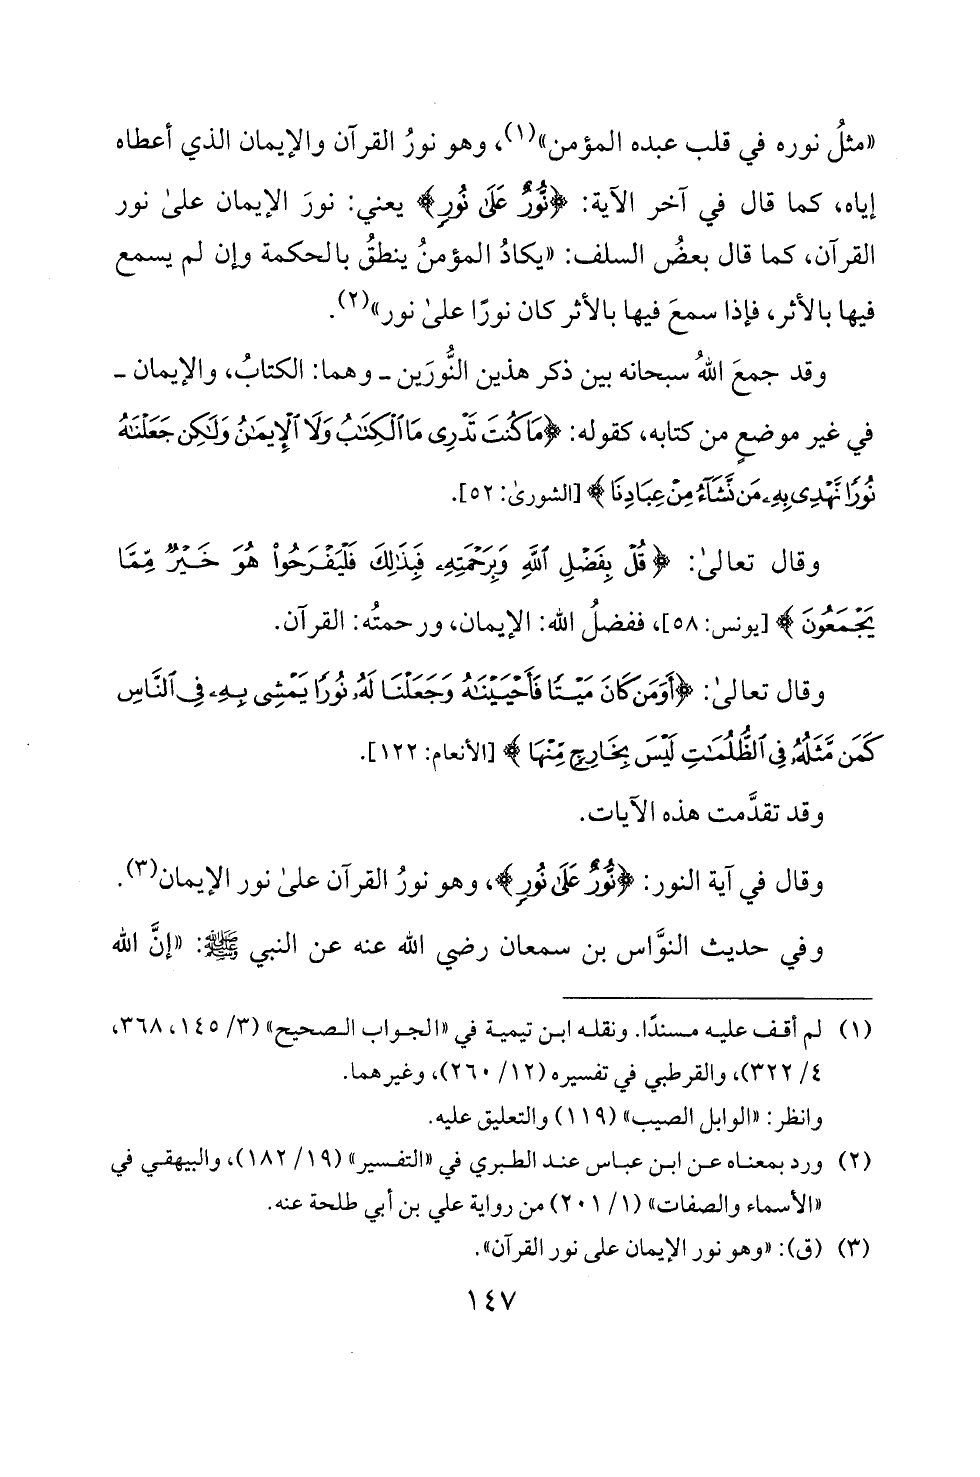 «مثلُ نوره في قلب عبده المؤمن»(١)، وهو نورُ القرآن والإيمان الذي أعطاه
إياه، كما قال في آخر الآية: ﴿نُّورٌ عَلَىٰ نُورٍ﴾ يعني: نورَ الإيمان علىٰ نور
القرآن، كما قال بعضُ السلف: «يكادُ المؤمنُ ينطقُ بالحكمة وإن لم يسمع
فيها بالأثر، فإذا سمعَ فيها بالأثر كان نورًا علىٰ نور»(٢).
وقد جمعَ اللهُ سبحانه بين ذكر هذين النُّورَين ـ وهما: الكتابُ، والإيمان ـ
في غير موضعٍ من كتابه، كقوله: ﴿مَا كُنتَ تَدْرِى مَا ٱلْكِتَٰبُ وَلَا ٱلْإِيمَٰنُ وَلَٰكِن جَعَلْنَٰهُ
نُورًا نَّهْدِى بِهِۦ مَن نَّشَآءُ مِنْ عِبَادِنَا﴾ [الشورىٰ: ٥٢].
وقال تعالىٰ: ﴿قُلْ بِفَضْلِ ٱللَّهِ وَبِرَحْمَتِهِۦ فَبِذَٰلِكَ فَلْيَفْرَحُوا۟ هُوَ خَيْرٌ مِّمَّا
يَجْمَعُونَ﴾ [يونس: ٥٨]، ففضلُ الله: الإيمان، ورحمتُه: القرآن.
وقال تعالىٰ: ﴿أَوَمَن كَانَ مَيْتًا فَأَحْيَيْنَٰهُ وَجَعَلْنَا لَهُۥ نُورًا يَمْشِى بِهِۦ فِى ٱلنَّاسِ
كَمَن مَّثَلُهُۥ فِى ٱلظُّلُمَٰتِ لَيْسَ بِخَارِجٍ مِّنْهَا﴾ [الأنعام: ١٢٢].
وقد تقدَّمت هذه الآيات.
وقال في آية النور: ﴿نُّورٌ عَلَىٰ نُورٍ﴾، وهو نورُ القرآن علىٰ نور الإيمان(٣).
وفي حديث النوَّاس بن سمعان رضي الله عنه عن النبي ﷺ: «إنَّ الله
(١) لم أقف عليه مسندًا. ونقله ابن تيمية في «الجواب الصحيح» (٣/ ١٤٥، ٣٦٨،
٤/ ٣٢٢)، والقرطبي في تفسيره (١٢/ ٢٦٠)، وغيرهما.
وانظر: «الوابل الصيب» (١١٩) والتعليق عليه.
(٢) ورد بمعناه عن ابن عباس عند الطبري في «التفسير» (١٩/ ١٨٢)، والبيهقي في
«الأسماء والصفات» (١/ ٢٠١) من رواية علي بن أبي طلحة عنه.
(٣) (ق): «وهو نور الإيمان على نور القرآن».
١٤٧